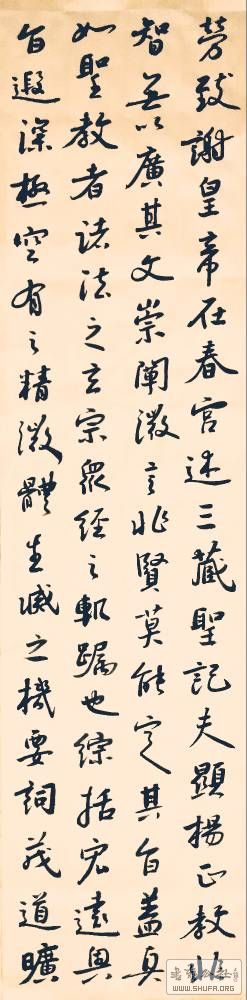 勞致謝皇帝在春宮述三藏聖記夫顯揚正教非
智無以廣其文崇闡微言非賢莫能定其旨蓋真
如聖教者諸法之玄宗眾經之軌躅也綜括宏遠奧
旨遐深極空有之精微體生滅之機要詞茂道曠
WWW.SHUFA.ORG